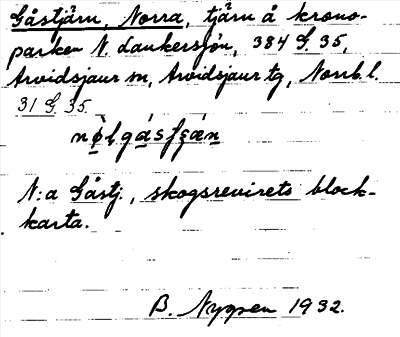 Gåstjärn, Norra, tjärn å krono-
parken N. Lankersjön, 384 G. 35,
Arvidsjaur sn, Arvidsjaur tg, Norrb. l.
31 G. 35.
N:a Gåstj., skogsrevirets block-
karta.
B. Nygren 1932.